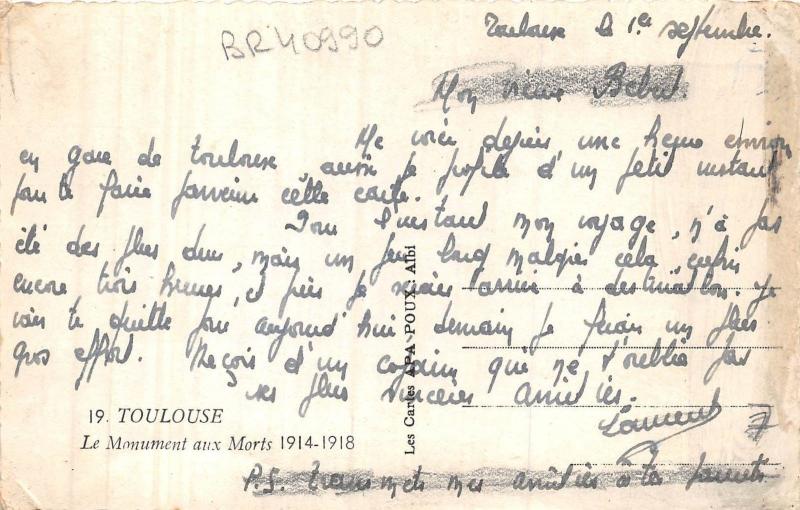 BR40990
Toulouse le 1er septembre.
Mon vieux Bebert.
Me voici depuis une heure environ
en gare de toulouse, aussi je profite d'un petit instant
pour te faire parvenir cette carte.
Pour l'instant mon voyage, n'a pas
été des plus durs, mais un peu long malgrés cela, enfin
encore trois heures, et puis je serais arrivé à destination. Je
vais te quitter pour aujourd'hui demain je ferais un plus
gros effort. Reçois d'un copain qui ne t'oublie pas
ses plus sincères amitiés.
Laurent
19. TOULOUSE
Le Monument aux Morts 1914-1918
Les Cartes APA-POUX, Albi
P.S. transmets mes amitiés à tes parents